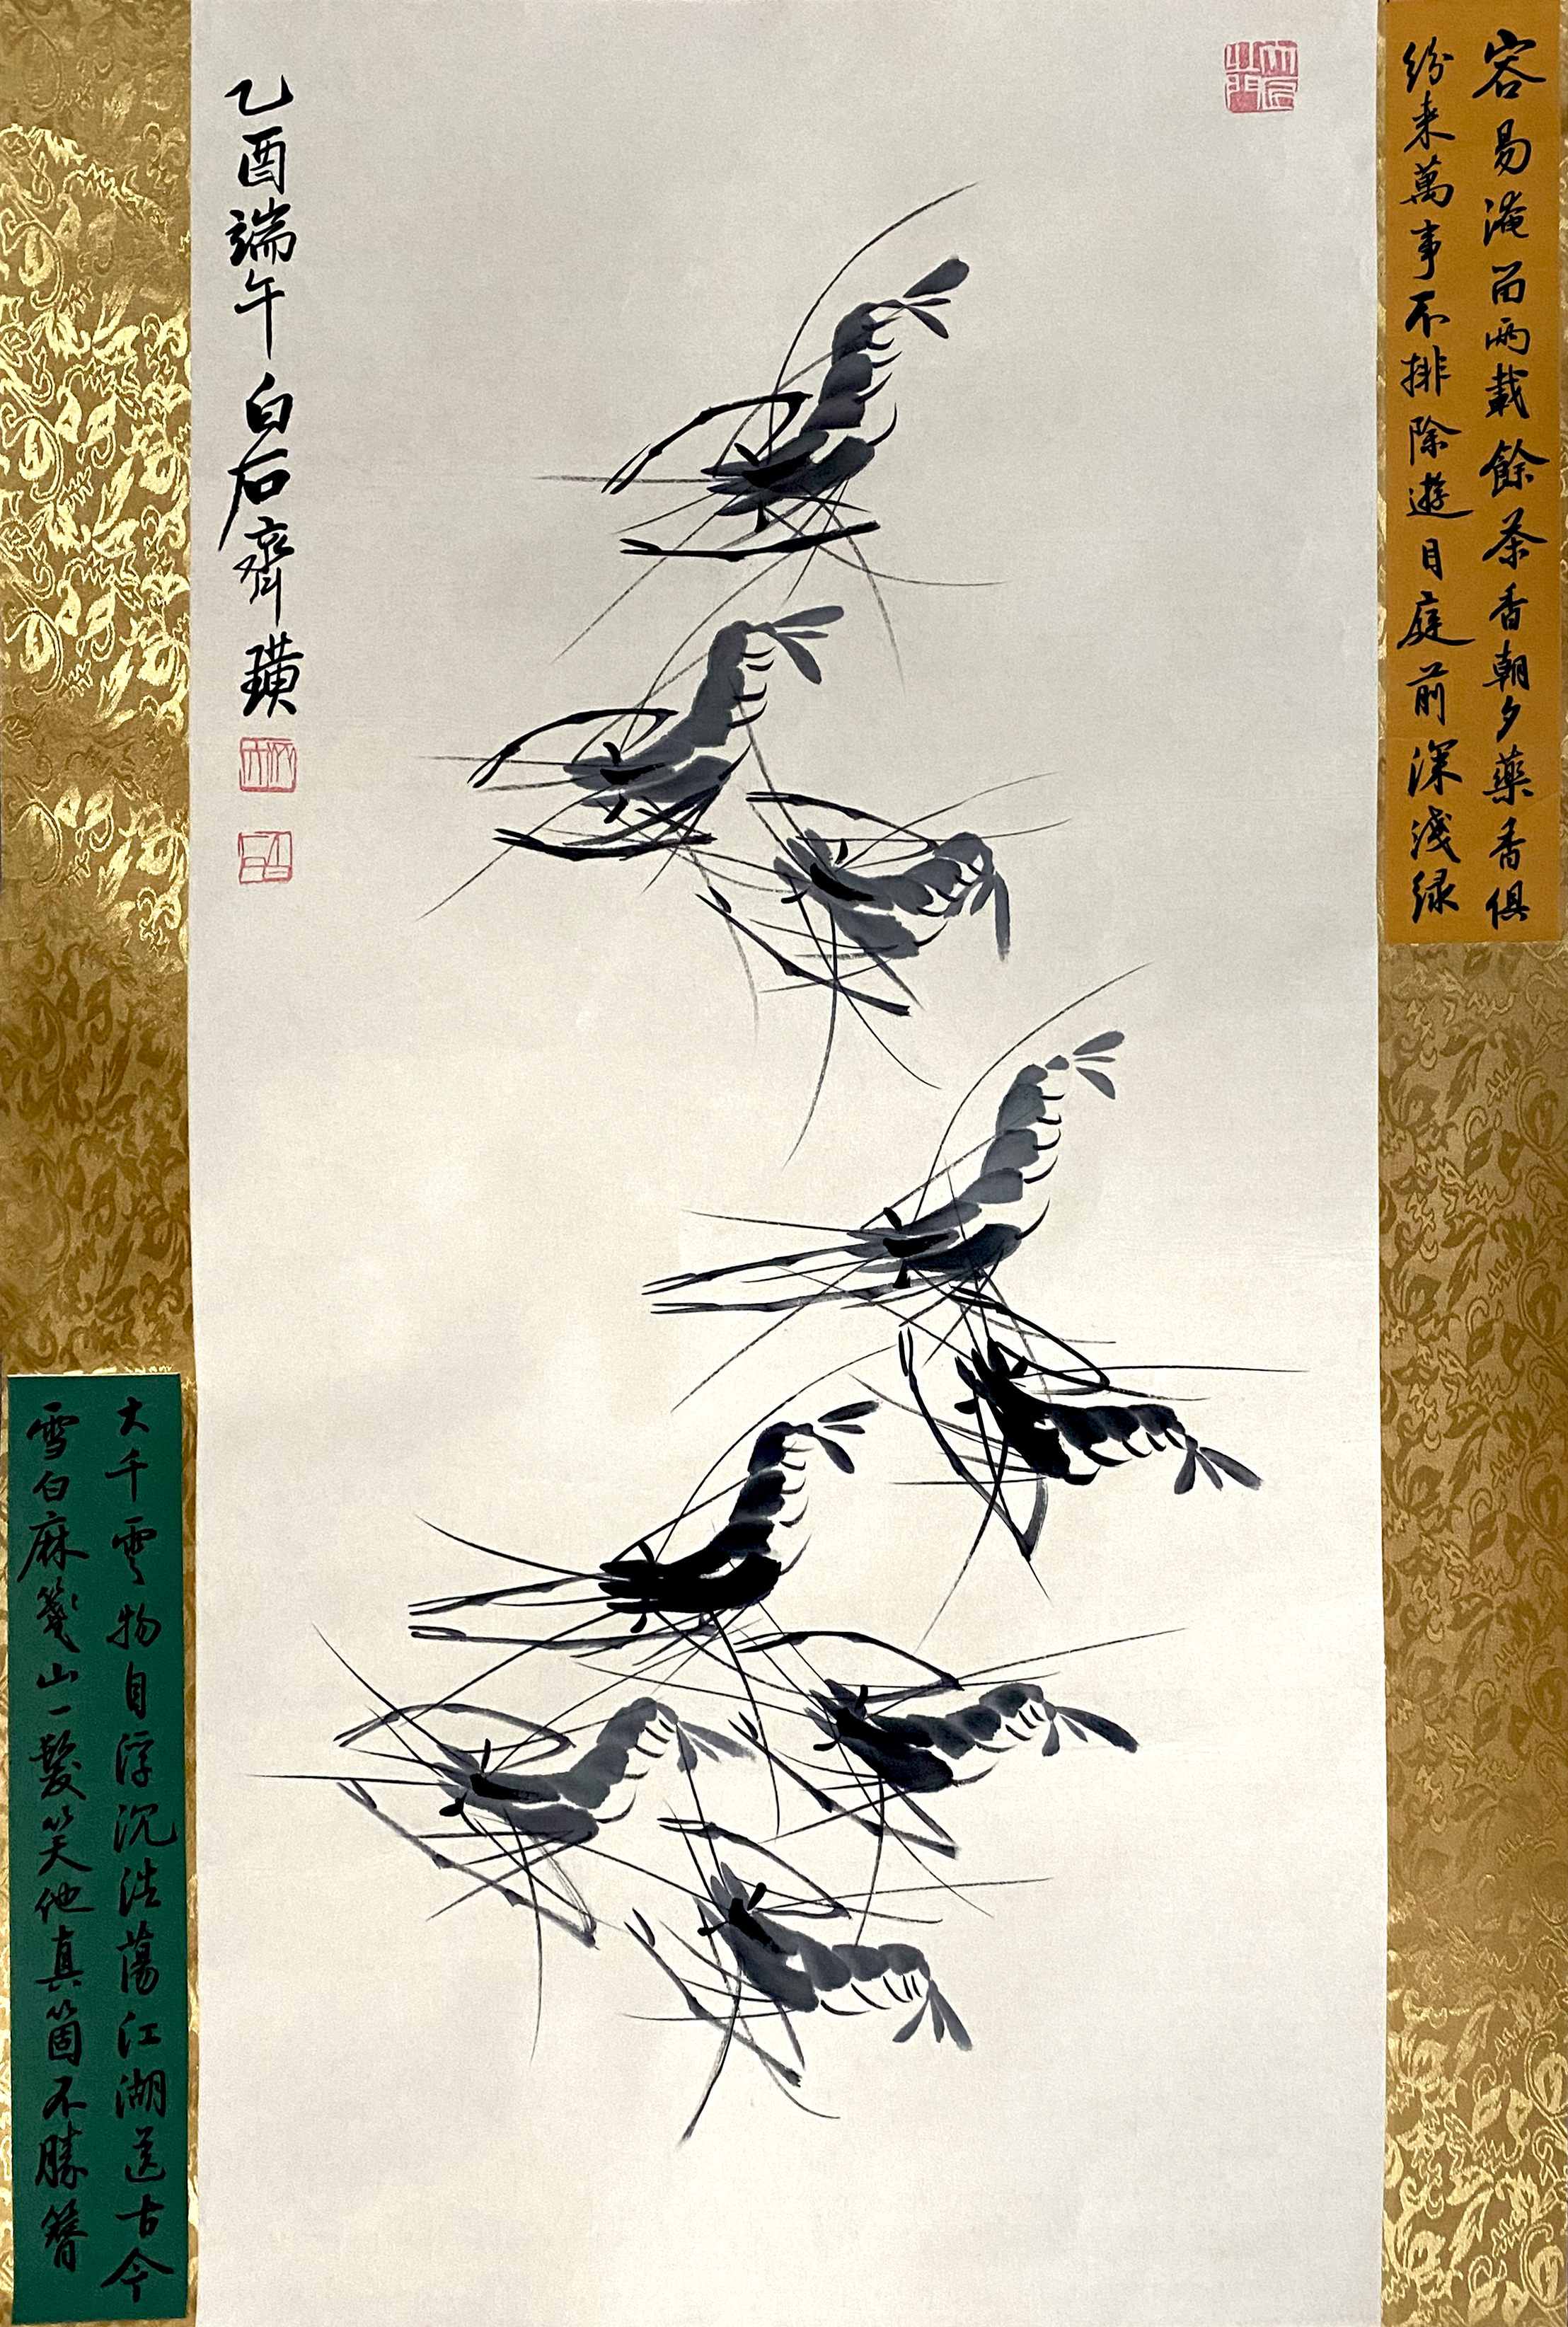 容易淹留兩載餘茶香朝夕藥香俱
纷来萬事不排除遊目庭前深淺緑
大匠之門
乙酉端午白石齊璜
大千雲物自浮沉浩蕩江湖送古今
雪白麻箋山一髮笑他真箇不勝簪